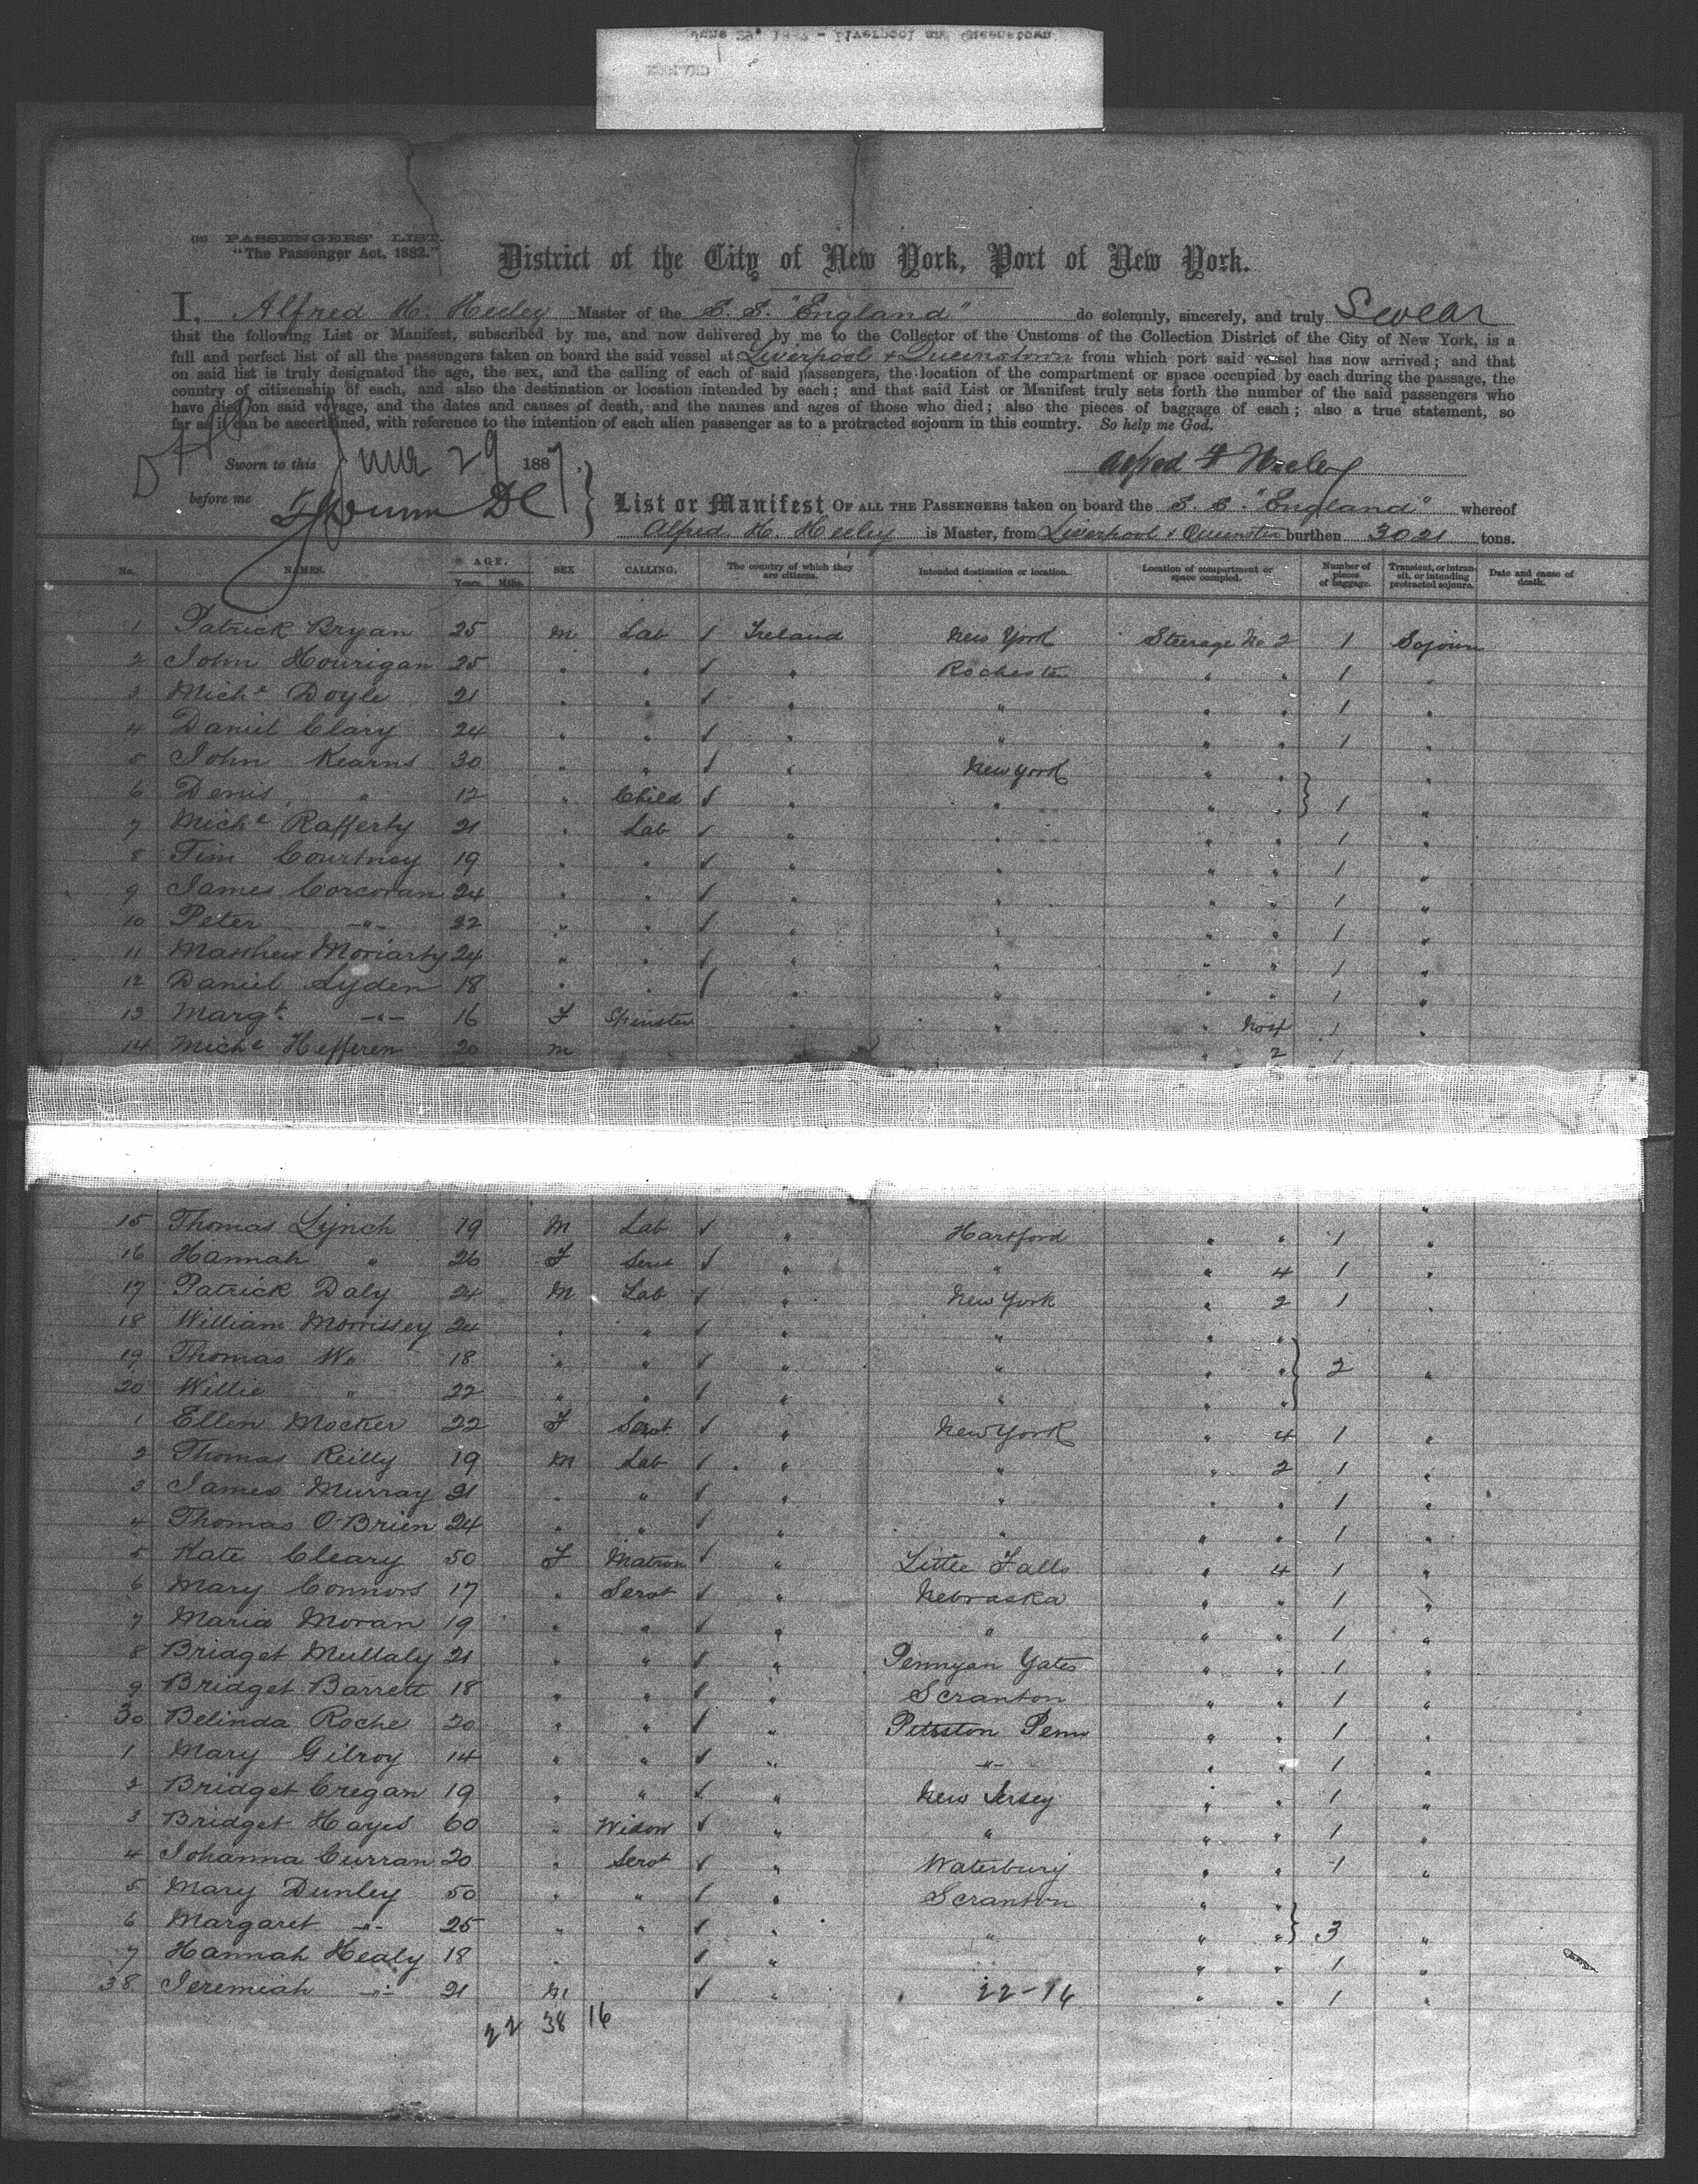 June 29" 1887 - Liverpool and Queenstown
(10) PASSENGERS' LIST.
"The Passenger Act, 1882."
District of the City of New York, Port of New York.
I, Alfred H. Heeley Master of the S. S. "England" do solemnly, sincerely, and truly Swear
that the following List or Manifest, subscribed by me, and now delivered by me to the Collector of the Customs of the Collection District of the City of New York, is a
full and perfect list of all the passengers taken on board the said vessel at Liverpool & Queenstown from which port said vessel has now arrived; and that
on said list is truly designated the age, the sex, and the calling of each of said passengers, the location of the compartment or space occupied by each during the passage, the
country of citizenship of each, and also the destination or location intended by each; and that said List or Manifest truly sets forth the number of the said passengers who
have died on said voyage, and the dates and causes of death, and the names and ages of those who died; also the pieces of baggage of each; also a true statement, so
far as it can be ascertained, with reference to the intention of each alien passenger as to a protracted sojourn in this country. So help me God.
Sworn to this June 29 1887. Alfred H Heeley
before me
List or Manifest OF ALL THE PASSENGERS taken on board the S. S. "England" whereof
Alfred H. Heeley is Master, from Liverpool & Queenstn burthen 3021 tons.
No. NAMES. AGE. Years. Mths. SEX CALLING. The country of which they are citizens. Intended destination or location. Location of compartment or space occupied. Number of pieces of baggage. Transient, or in transit, or intending protracted sojourn. Date and cause of death.
1 Patrick Bryan 25 M Lab / Ireland New York Steerage No 2 1 Sojourn
2 John Hourigan 25 " " / " Rochester " " 1 "
3 Michl Doyle 21 " " / " " " " 1 "
4 Daniel Clary 24 " " / " " " " 1 "
5 John Kearns 30 " " / " New York " " "
6 Denis " 12 " Child / " " " " 1 "
7 Michl Rafferty 21 " Lab / " " " " 1 "
8 Tim Courtney 19 " " / " " " " 1 "
9 James Corcoran 24 " " / " " " " 1 "
10 Peter -"- 22 " " / " " " " 1 "
11 Matthew Moriarty 24 " " / " " " " 1 "
12 Daniel Lyden 18 " " / " " " " 1 "
13 Margt. -"- 16 F Spinster " " " No 4 1 "
14 Michl Hefferen 20 m " 2 1
15 Thomas Lynch 19 M Lab / " Hartford " " 1 "
16 Hannah " 26 F Servt / " " " 4 1 "
17 Patrick Daly 24 M Lab / " New York " 2 1 "
18 William Morrissey 24 " " / " " " "
19 Thomas 18 " " / " " " " 2 "
20 Willie " 22 " " / " " " "
1 Ellen Mocker 22 F Servt / " New York " 4 1 "
2 Thomas Reilly 19 M Lab / " " " 2 1 "
3 James Murray 21 " " / " " " " 1 "
4 Thomas O'Brien 24 " " / " " " " 1 "
5 Kate Cleary 50 F Matron / " Little Falls " 4 1 "
6 Mary Connors 17 " Servt / " Nebraska " " 1 "
7 Maria Moran 19 " " / " " " " 1 "
8 Bridget Mullaly 21 " " / " Pennyan Yates " " 1 "
9 Bridget Barrett 18 " " / " Scranton " " 1 "
30 Belinda Roche 20 " " / " Pittston Penn " " 1 "
1 Mary Gilroy 14 " " / " -"- " " 1 "
2 Bridget Cregan 19 " " / " New Jersey " " 1 "
3 Bridget Hayes 60 " Widow / " " " " 1 "
4 Johanna Curran 20 " Servt / " Waterbury " " 1 "
5 Mary Dunley 50 " " / " Scranton " "
6 Margaret -"- 25 " " / " " " " 3 "
7 Hannah Healy 18 " / " " " 1 "
38 Jeremiah -"- 21 M / " 22-16 " " 1 "
22 38 16